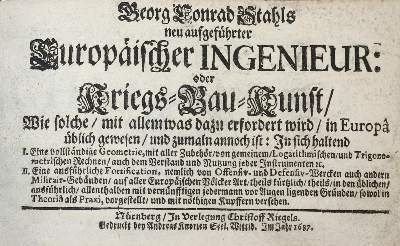 Georg Conrad Stahls
neu aufgeführter
Europäischer INGENIEUR:
oder
Kriegs-Bau-Kunst/
Wie solche/ mit allem was dazu erfordert wird/ in Europâ
üblich gewesen/ und zumaln annoch ist: In sich haltend
I. Eine vollständige Geometrie, mit aller Zubehör/ von gemeinem/ Logarithmischen/ und Trigono-
metrischen Rechnen/ auch dem Verstand und Nutzung jeder Instrumenten ꝛc.
II. Eine ausführliche Fortification, nemlich von Offensiv- und Defensiv-Wercken auch andern
Militair-Gebäuden/ auf aller Europäischen Völcker Art/ theils kürtzlich/ theils/ in den üblichen/
ausführlich/ allenthalben mit vernünfftigen jedermann vor Augen ligenden Gründen/ sowol in
Theoriâ als Praxi, vorgestellt/ und mit nöthigen Kupffern versehen.
Nürnberg/ In Verlegung Christoff Riegels.
Gedruckt bey Andreas Knorzen Seel. Wittib. Im Jahr 1687.